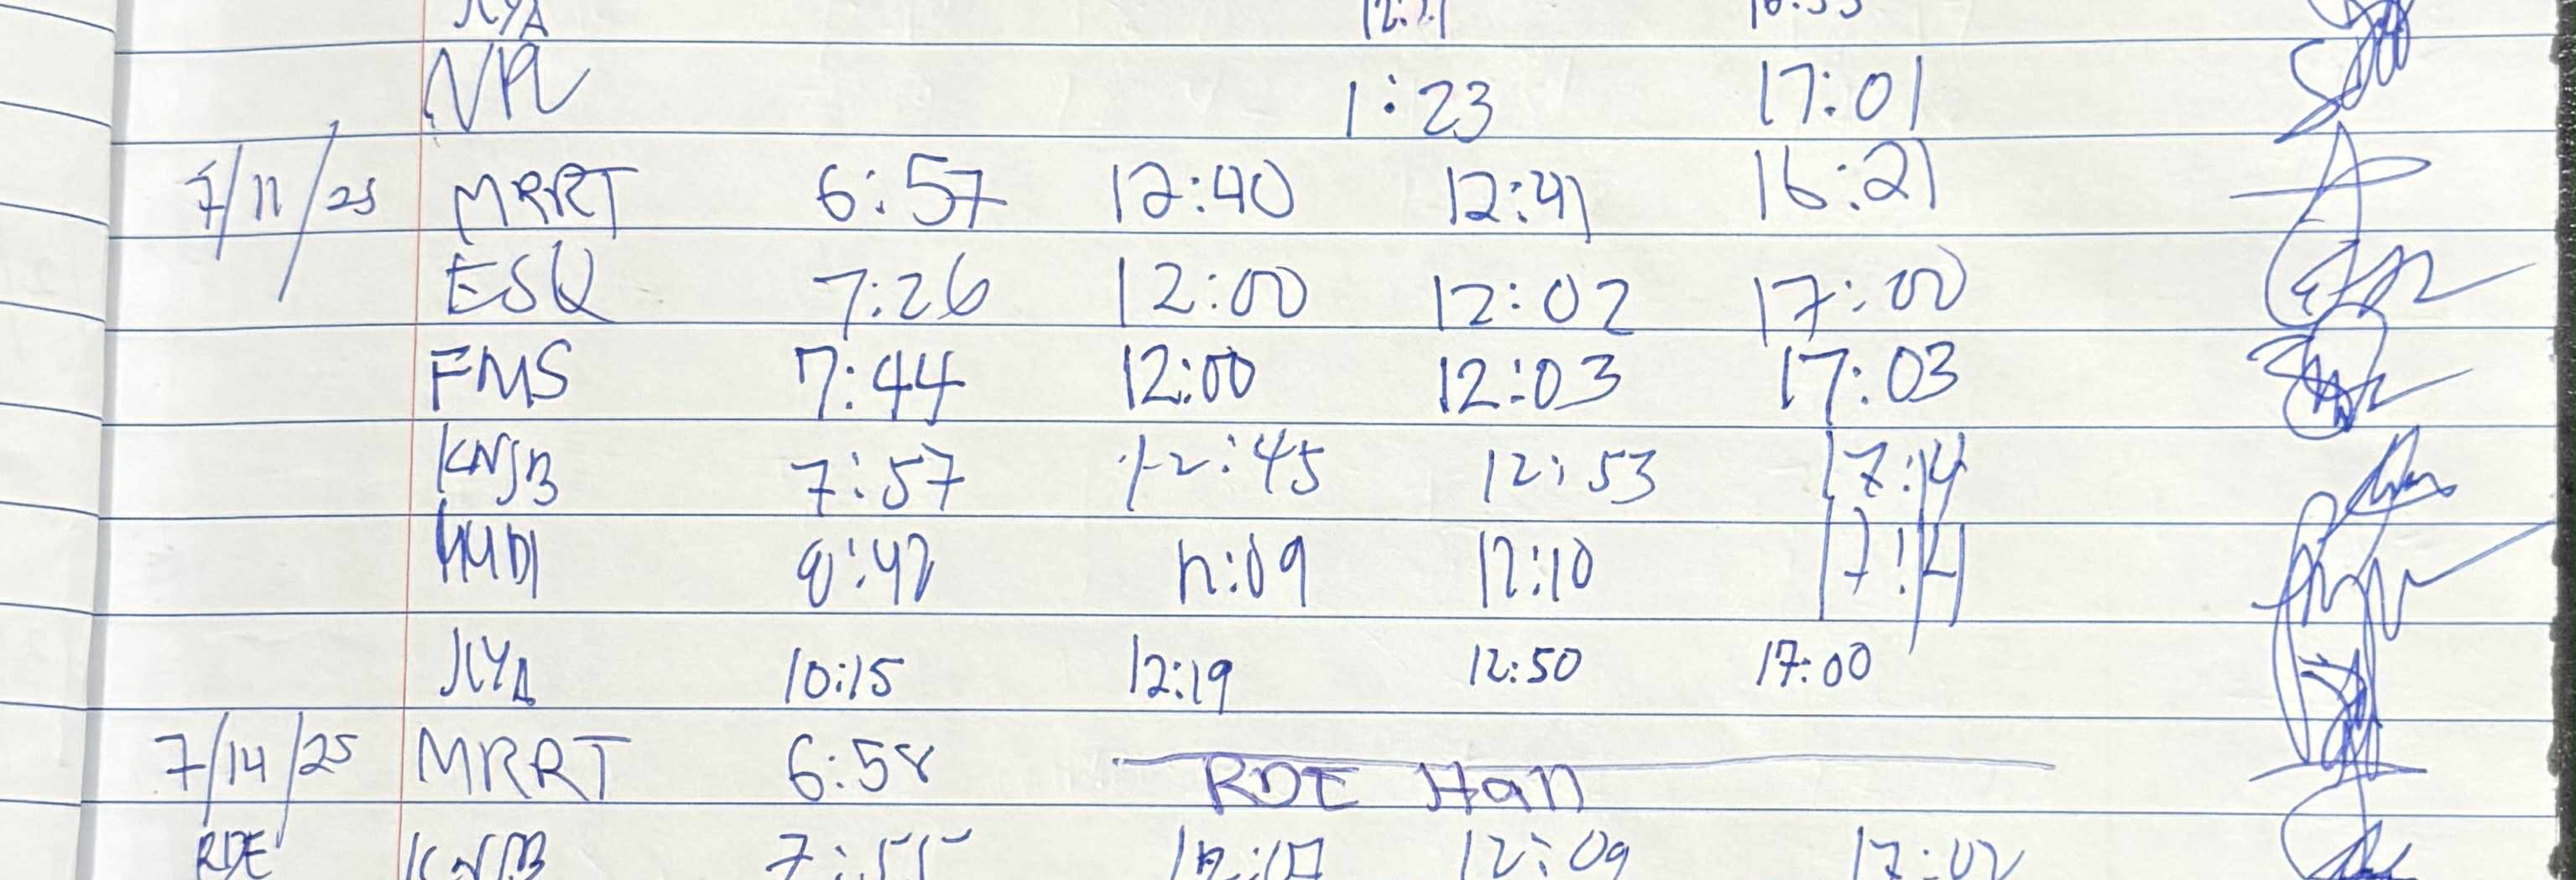 JLYA 12:21 16:55
NPL 1:23 17:01
7/11/25 MRRT 6:57 12:40 12:41 16:21
ESQ 7:26 12:00 12:02 17:00
FMS 7:44 12:00 12:03 17:03
KNJB 7:57 12:45 12:53 17:14
12:09 12:10 17:14
JLYA 10:15 12:19 12:50 17:00
7/14/25 MRRT 6:58 RDE Hall
RDE KNJB 7:55 12:07 12:09 17:02